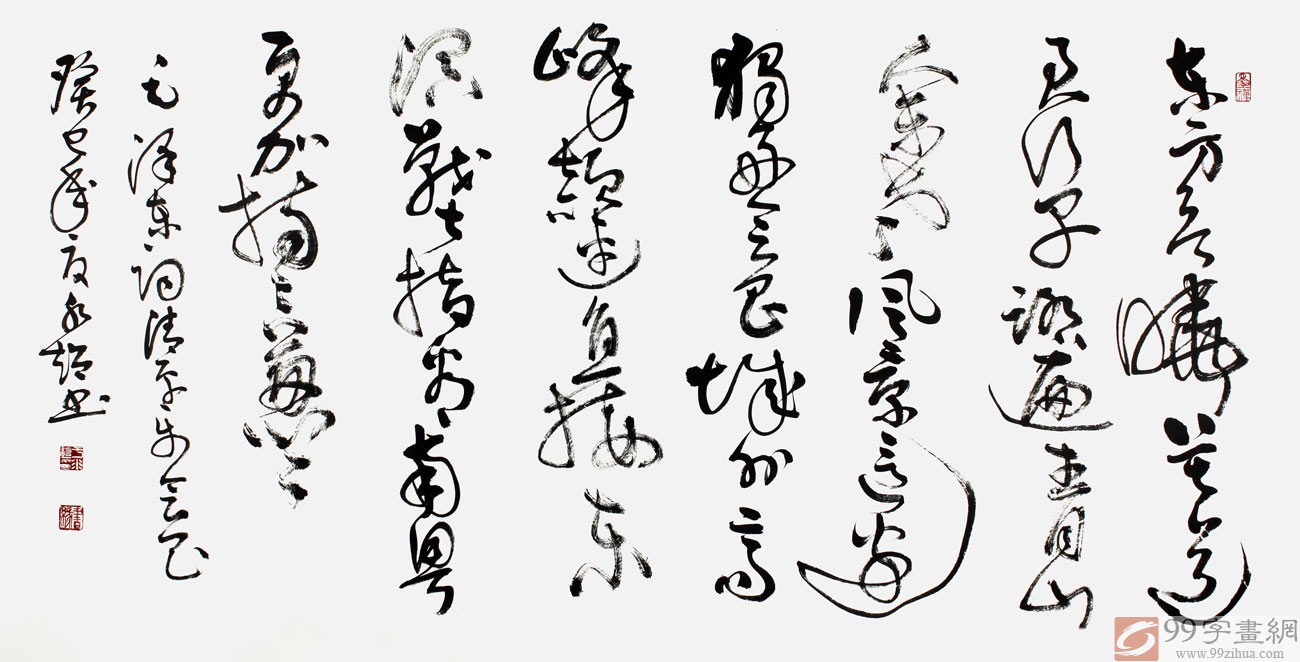 东方欲曉莫道
君行早踏遍青山
人未老风景这边
獨好会昌城外高
峰颠连直接东
溟戰士指看南粤
更加郁郁葱葱
毛泽东词清平乐会昌
癸巳年夏永超书
99字畫網
www.99zihua.com